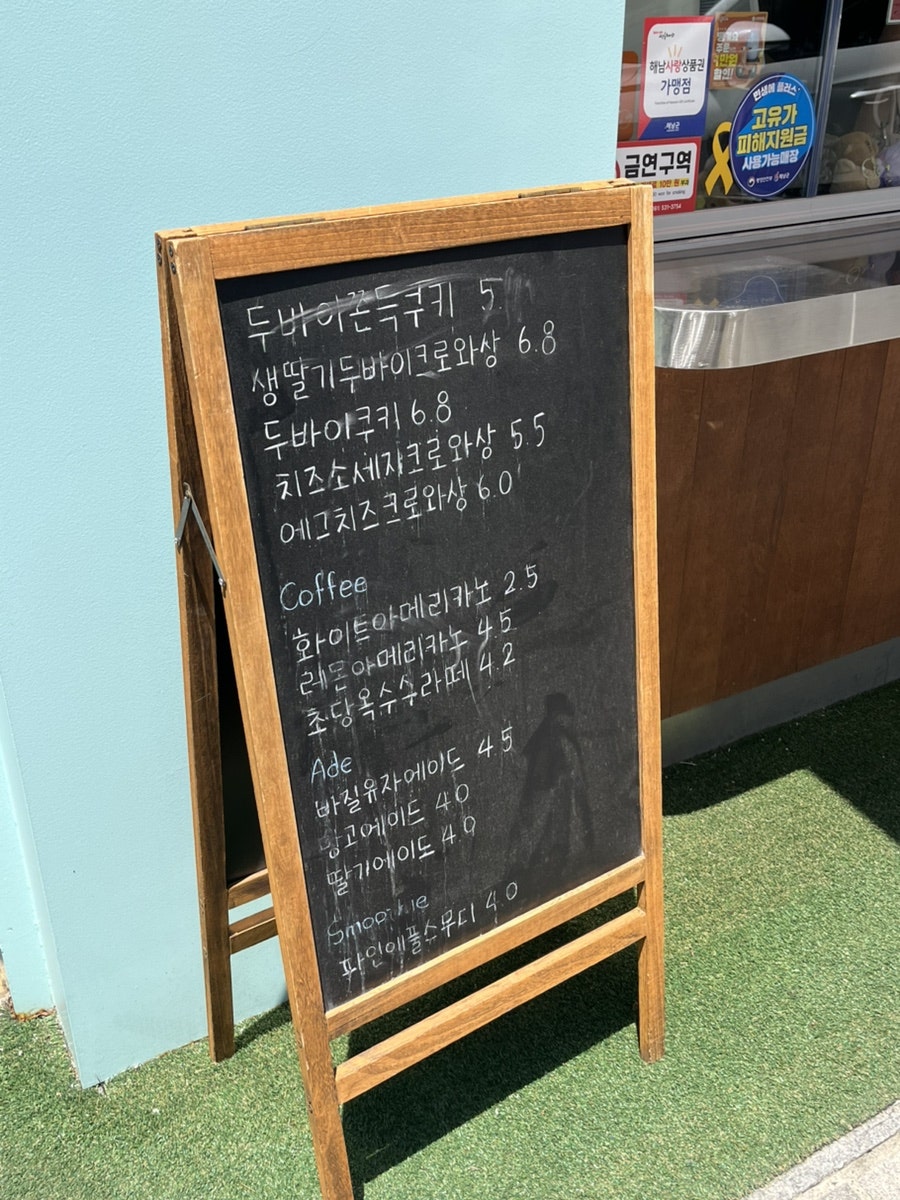 해남사랑상품권
가맹점
해남군
금연구역
민생에 플러스+
고유가
피해지원금
사용가능매장
행정안전부 해남군
두바이쫀득쿠키 5
생딸기두바이크로와상 6.8
두바이쿠키 6.8
치즈소세지크로와상 5.5
에그치즈크로와상 6.0
Coffee
화이트아메리카노 2.5
레몬아메리카노 4.5
초당옥수수라떼 4.2
Ade
바질유자에이드 4.5
망고에이드 4.0
딸기에이드 4.0
Smoothie
파인애플수무디 4.0